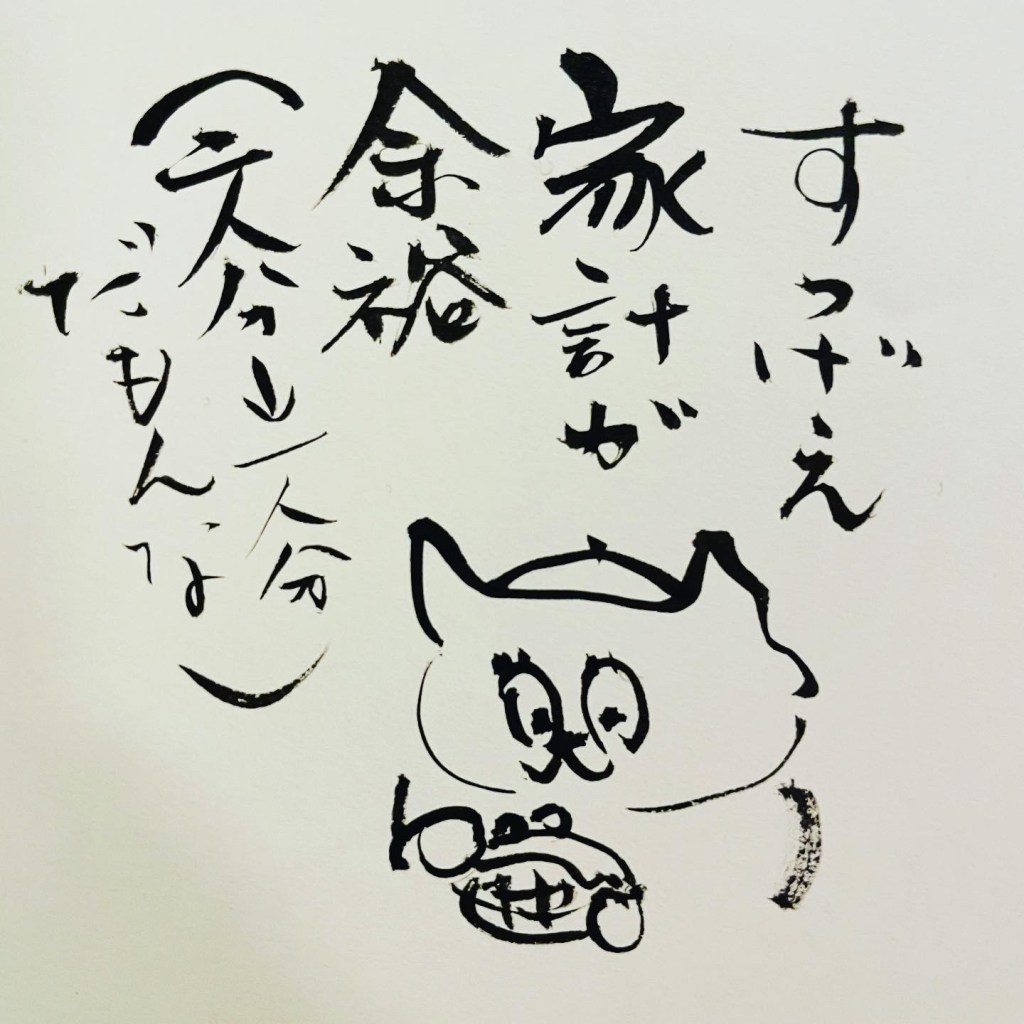 すっげえ
家計が
余裕
(二人分→一人分
だもんな)